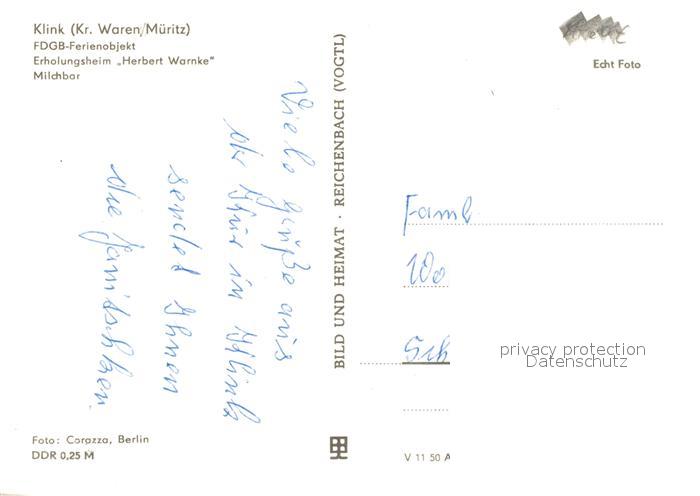 Klink (Kr. Waren/Müritz)
FDGB-Ferienobjekt
Erholungsheim „Herbert Warnke"
Milchbar
Viele Grüße aus
der Kur in Klink
sendet Ihnen
die
Foto: Corazza, Berlin
DDR 0,25 M
BILD UND HEIMAT · REICHENBACH (VOGTL)
Echt Foto
Faml
Wo
Sch
privacy protection
Datenschutz
V 11 50 A